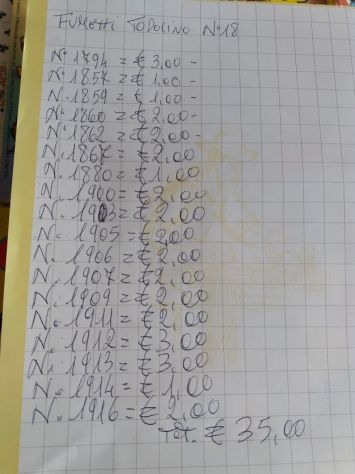 FUMETTI TOPOLINO N°18
N° 1794 = € 3,00 -
N° 1857 = € 1,00 -
N. 1859 = € 1,00 -
N° 1860 = € 2,00 -
N° 1862 = € 2,00 -
N. 1867 = € 2,00
N. 1880 = € 1,00
N. 1900 = € 2,00
N. 1903 = € 2,00
N. 1905 = € 2,00
N. 1906 = € 2,00
N. 1907 = € 2,00
N. 1909 = € 2,00
N. 1911 = € 2,00
N. 1912 = € 3,00
N. 1913 = € 3,00
N. 1914 = € 1,00
N. 1916 = € 2,00
Tot. € 35,00